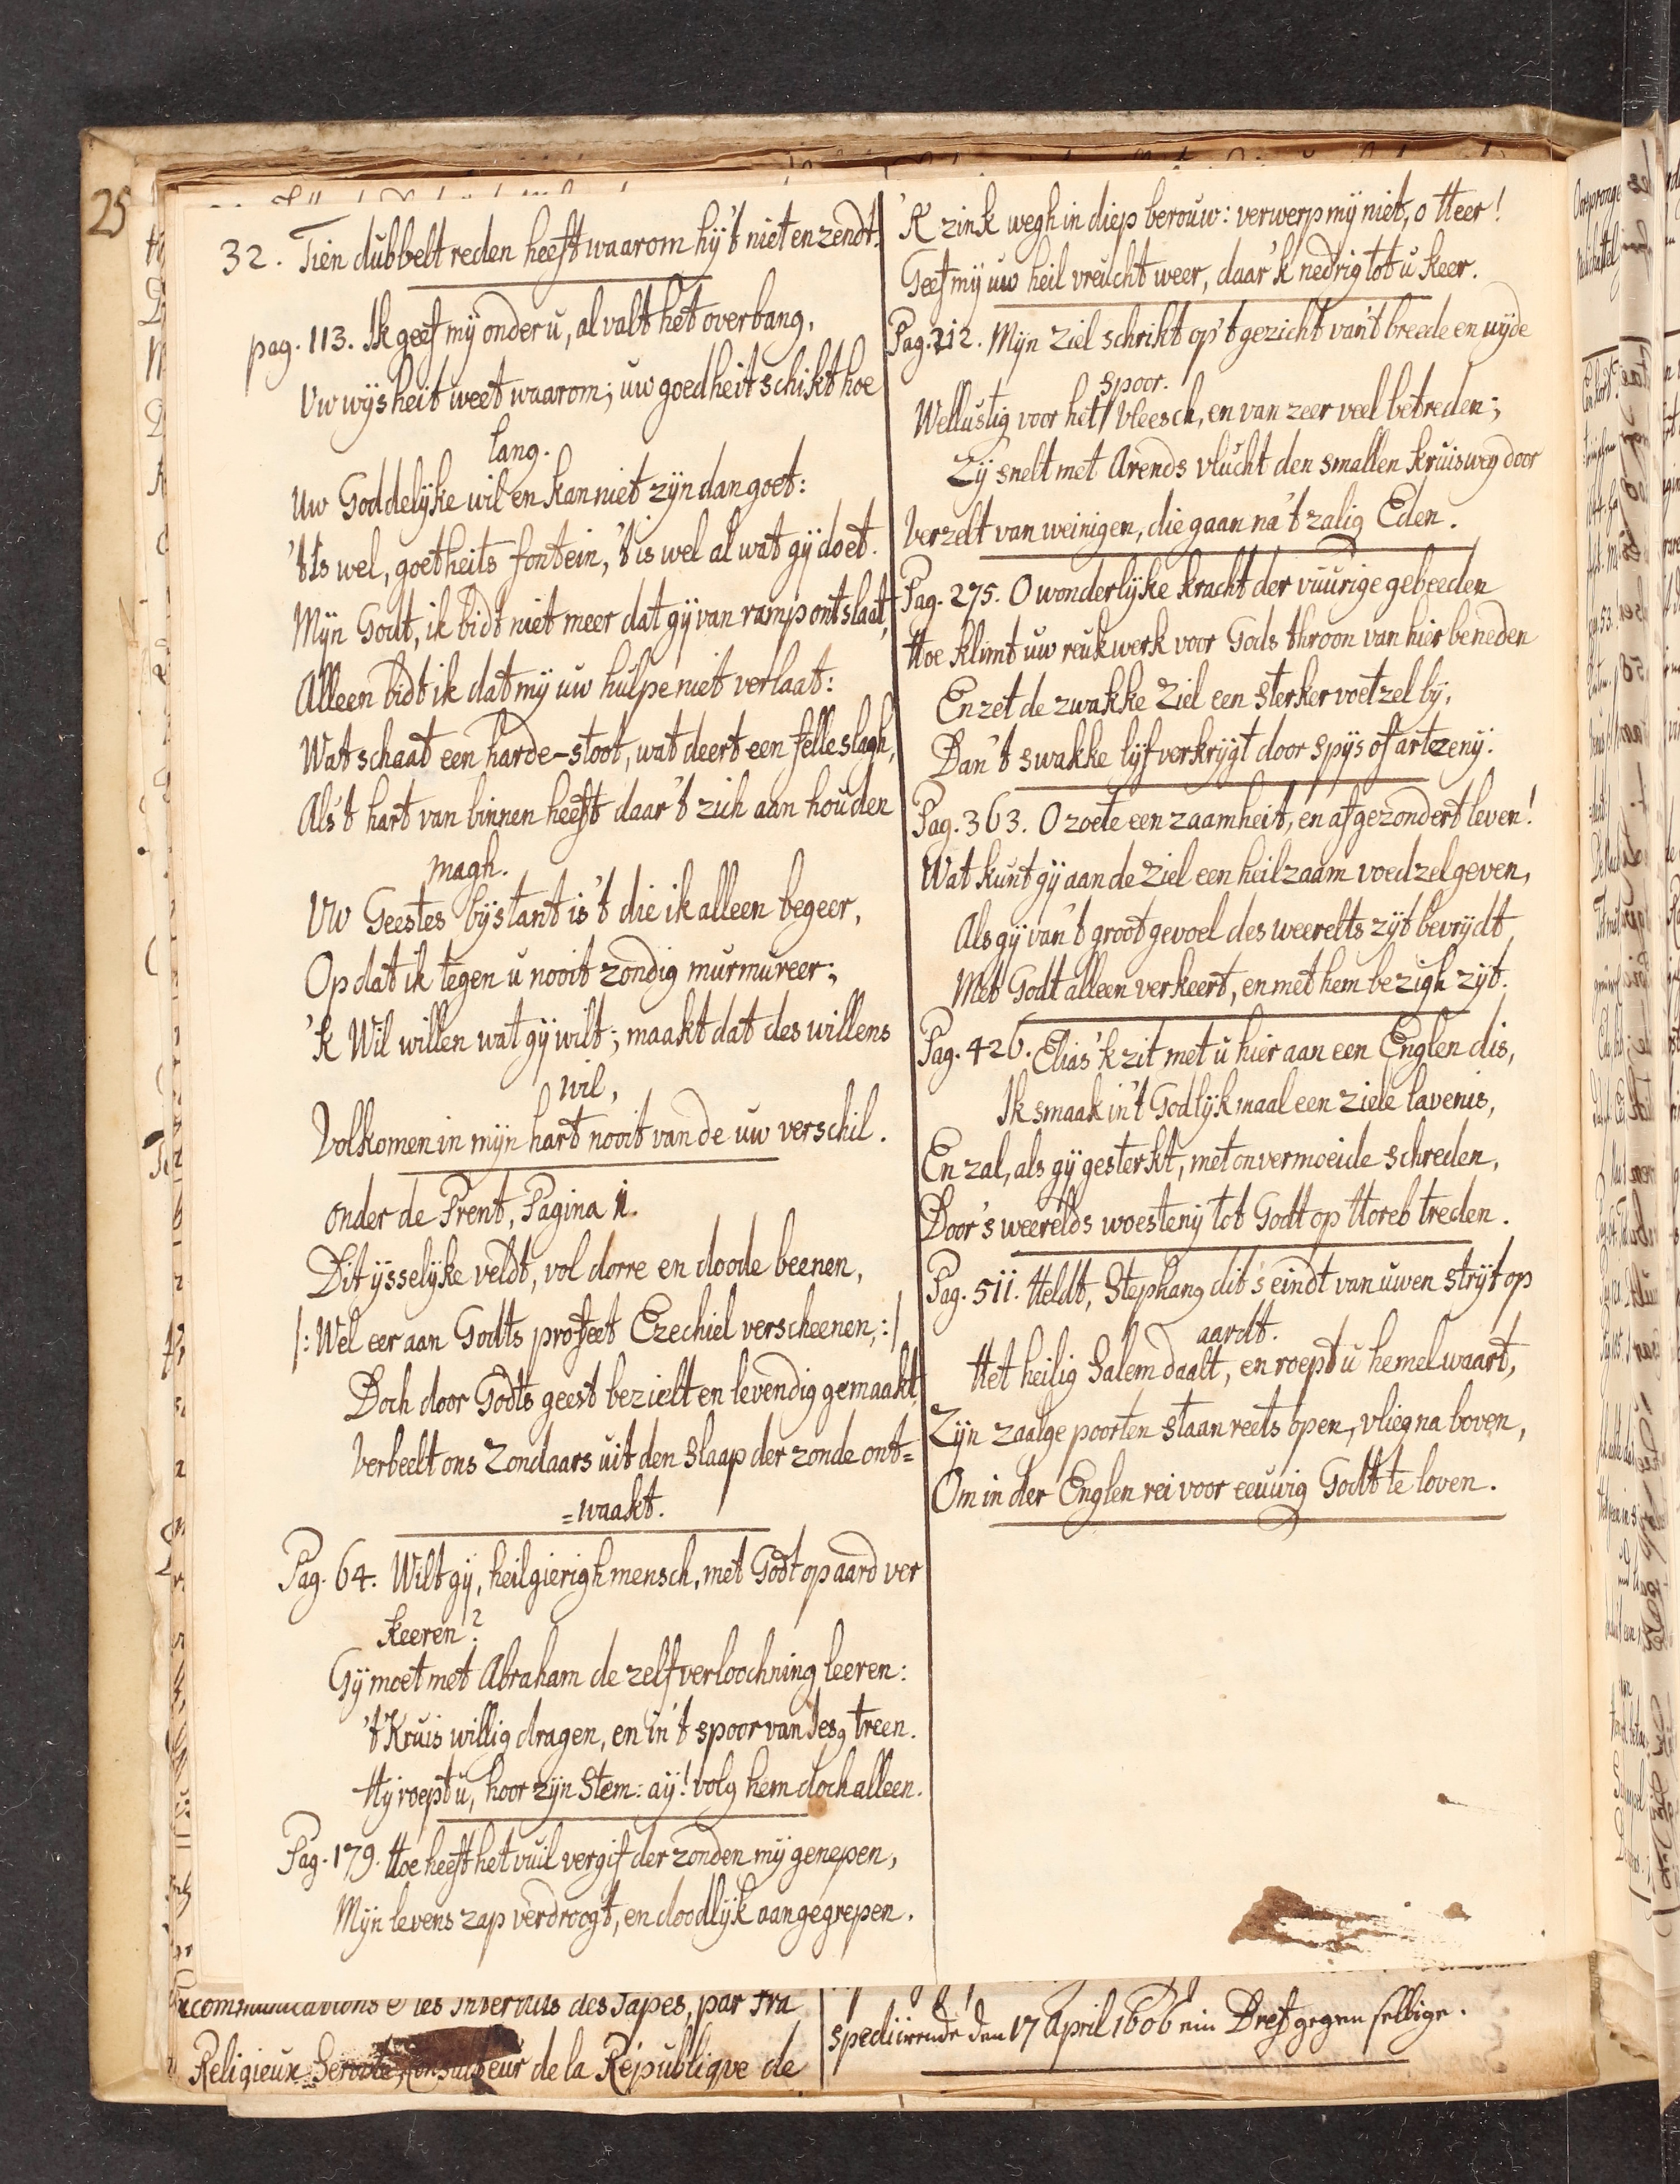 25
32. Tien dubbelt reden heeft waarom hij't niet en zendt.
pag. 113. Ik geef mij onder u, al valt het overbang,
Uw wijsheit weet waarom; uw goedheit schikt hoe
lang.
Uw Goddelijke wil en kan niet zijn dan goet:
't Is wel, goetheits fontein, 't is wel al wat gij doet.
Mijn Godt, ik bidt niet meer dat gij van ramp ontslaat,
Alleen bidt ik dat mij uw hulpe niet verlaat:
Wat schaat een harde-stoot, wat deert een felle slagh,
Als't hart van binnen heeft daar 't zich aan houden
magh.
Uw Geestes bijstant is 't die ik alleen begeer,
Op dat ik tegen u nooit zondig murmureer;
'k Wil willen wat gij wilt; maakt dat des willens
wil,
Volkomen in mijn hart nooit van de uw verschil.
onder de Prent, Pagina 1.
Dit ijsselijke veldt, vol dorre en doode beenen,
/: Wel eer aan Godts profeet Ezechiel verscheenen, :/
Doch door Godts geest bezielt en levendig gemaakt,
Verbeelt ons Zondaars uit den slaap der zonde ont=
=waakt.
Pag. 64. Wilt gij, heilgierigh mensch, met Godt op aard ver
keeren?
Gij moet met Abraham de zelfverloochning leeren:
't Kruis willig dragen, en in't spoor van Jesꝯ treen.
Hij roept u, hoor zijn Stem: aij! volg hem doch alleen.
Pag. 179. Hoe heeft het vuil vergif der zonden mij genepen,
Mijn levens zap verdroogt, en doodlijk aangegrepen.
'K zink wegh in diep berouw: verwerp mij niet, o Heer!
Geef mij uw heil vreucht weer, daar 'k nedrig tot u keer.
Pag. 212. Mijn Ziel schrikt op't gezicht van't breede en wijde
spoor.
Wellustig voor het vleesch, en van zeer veel betreden;
Zij snelt met Arends vlucht den smallen kruisweg door
Verzelt van weinigen, die gaan na 't zalig Eden.
Pag. 275. O wonderlijke kracht der vuurige gebeeden
Hoe klimt uw reukwerk voor Gods throon van hier beneden
En zet de zwakke Ziel een sterker voetzel bij,
Dan 't swakke lijf verkrijgt door spijs of artzenij.
Pag. 363. O zoete eenzaamheit, en afgezondert leven!
Wat kunt gij aan de Ziel een heilzaam voedzel geven,
Als gij van't groot gevoel des weerelts zijt bevrijdt
Met Godt alleen verkeert, en met hem bezigh zijt.
Pag. 426. Elias 'k zit met u hier aan een Englen dis,
Ik smaak in't Godlijk maal een ziele lavenis,
En zal, als gij gesterkt, met onvermoeide schreden,
Door's weerelds woestenij tot Godt op Horeb treden.
Pag. 511. Heldt, Stephanꝯ dit's eindt van uwen strijt op
aardt.
Het heilig Salem daalt, en roept u hemelwaart,
Zijn zaalge poorten staan reets open, vlieg na boven,
Om in der Englen rei voor eeuwig Godt te loven.
communications & les Interdits des Papes, par Fra
Religieux Servite, Consulteur de la Republique de
spediirende den 17 April 1606 ein Bref gegen selbige.